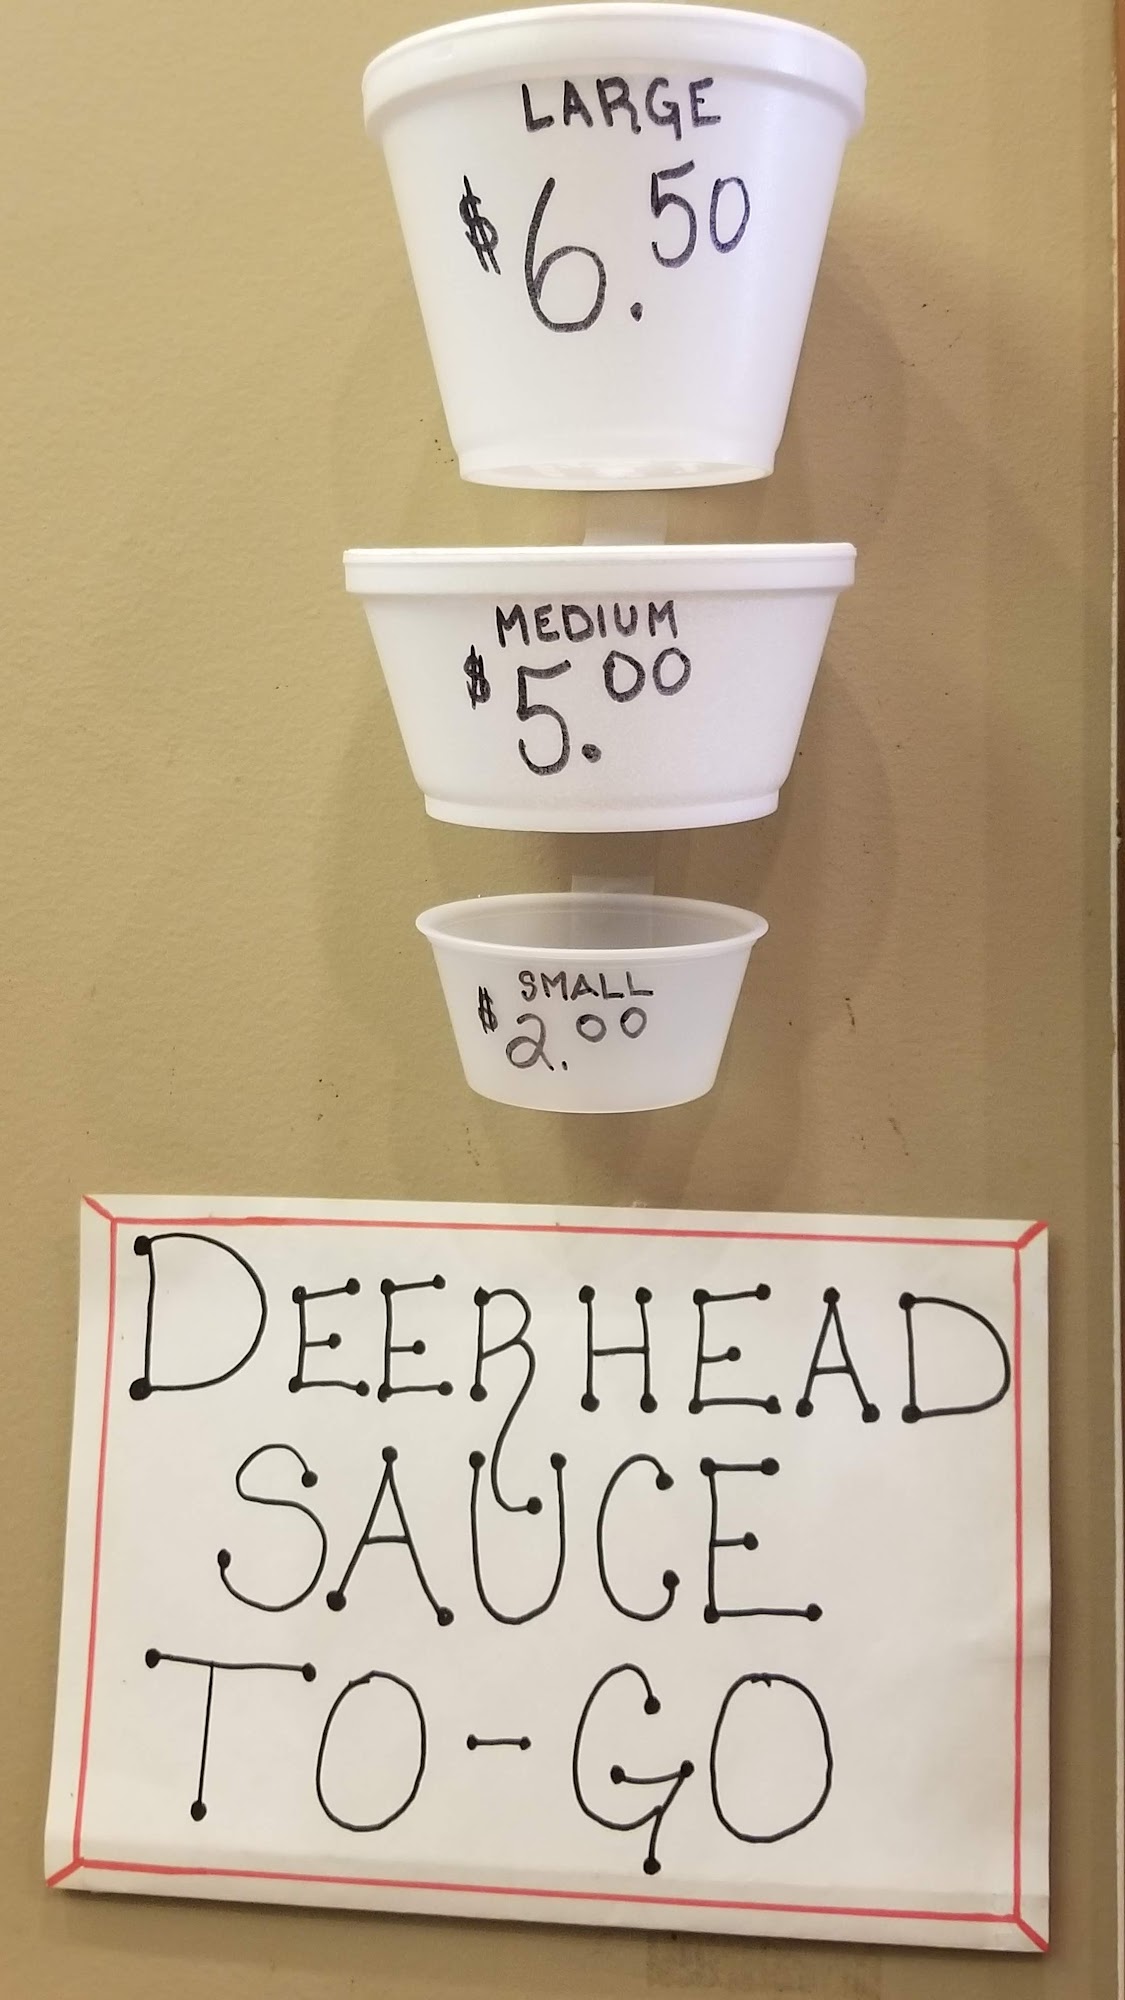 LARGE
$6.50
MEDIUM
$5.00
SMALL
$2.00
DEERHEAD
SAUCE
TO-GO